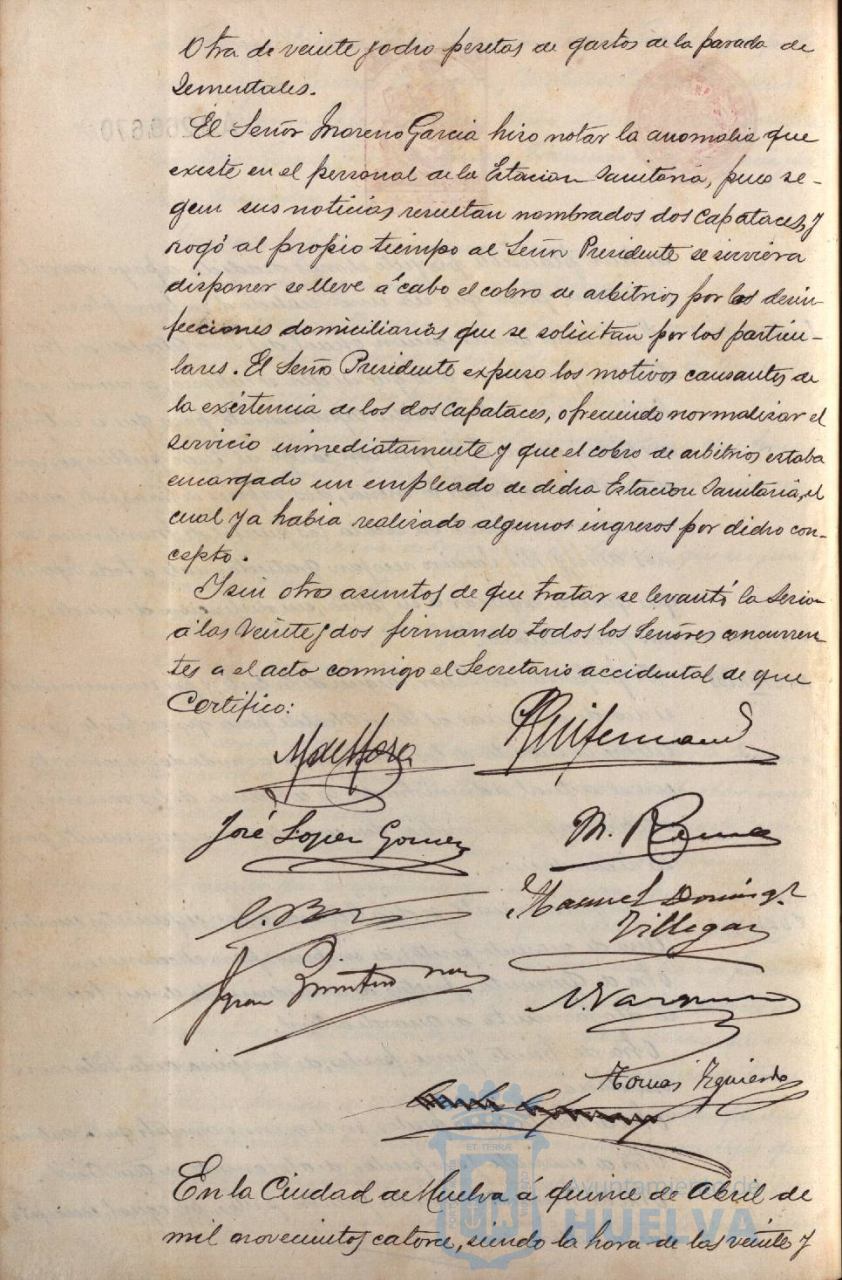 Otra de veinte y ocho pesetas de gastos de la parada de
Sementales.
El Señor Moreno Garcia hizo notar la anomalia que
existe en el personal de la Estacion Sanitaria, pues se-
gun sus noticias resultan nombrados dos capataces, y
rogó al propio tiempo al Señor Presidente se sirviera
disponer se lleve á cabo el cobro de arbitrios por las desin-
fecciones domiciliarias que se solicitan por los particu-
lares. El Señor Presidente expuso los motivos causantes de
la existencia de los dos capataces, ofreciendo normalizar el
servicio inmediatamente y que el cobro de arbitrios estaba
encargado un empleado de dicha Estacion Sanitaria, el
cual ya habia realizado algunos ingresos por dicho con-
cepto.
Y sin otros asuntos de que tratar se levantó la Sesion
á las veinte y dos firmando todos los Señores concurren-
tes a el acto conmigo el Secretario accidental de que
Certifico:
José Lopez Gomez
M.
Manuel Doming.z
Villegas
Tomas Izquierdo
En la Ciudad de Huelva á quince de Abril de
mil novecientos catorce, siendo la hora de las veinte y
Ayuntamiento de
HUELVA